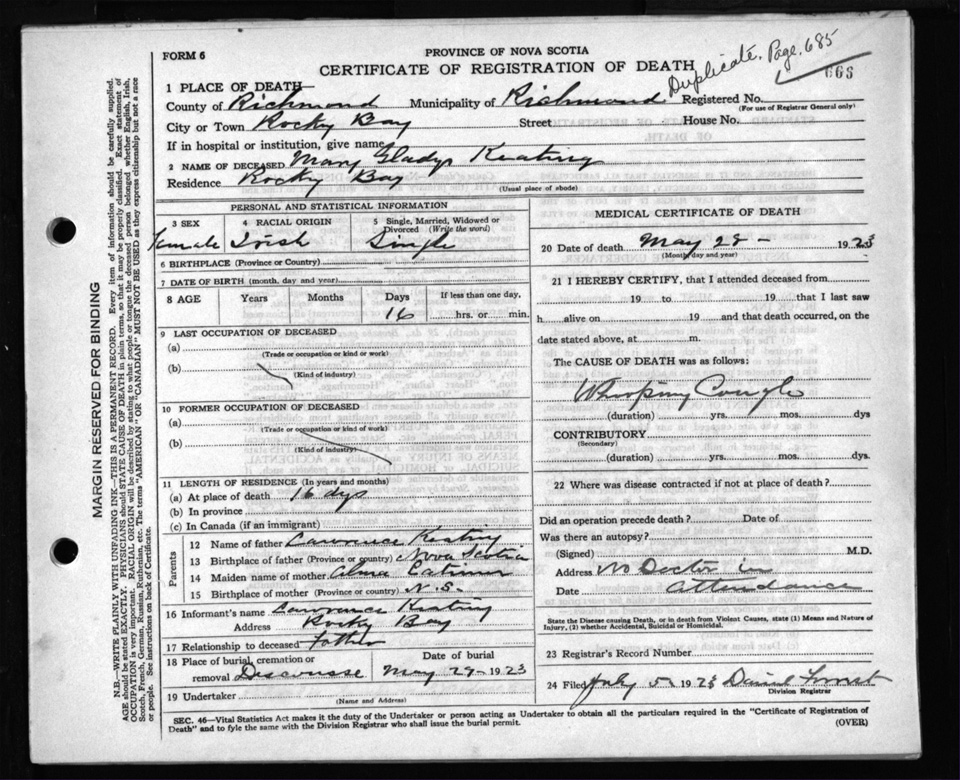 FORM 6
PROVINCE OF NOVA SCOTIA
CERTIFICATE OF REGISTRATION OF DEATH
Duplicate. Page, 685
668
1 PLACE OF DEATH—
County of Richmond Municipality of Richmond Registered No.
(For use of Registrar General only)
City or Town Rocky Bay Street House No.
If in hospital or institution, give name
2 NAME OF DECEASED Mary Gladys Keating
Residence Rocky Bay
(Usual place of abode)
PERSONAL AND STATISTICAL INFORMATION
3 SEX 4 RACIAL ORIGIN 5 Single, Married, Widowed or Divorced (Write the word)
Female Irish Single
6 BIRTHPLACE (Province or Country)
7 DATE OF BIRTH (month, day and year)
8 AGE Years Months Days If less than one day,
16 hrs. or min.
9 LAST OCCUPATION OF DECEASED
(a)
(Trade or occupation or kind or work)
(b)
(Kind of industry)
10 FORMER OCCUPATION OF DECEASED
(a)
(Trade or occupation or kind of work)
(b)
(Kind of industry)
11 LENGTH OF RESIDENCE (In years and months)
(a) At place of death 16 dys
(b) In province
(c) In Canada (if an immigrant)
Parents
12 Name of father Lawrence Keating
13 Birthplace of father (Province or country) Nova Scotia
14 Maiden name of mother Alma
15 Birthplace of mother (Province or country) N.S.
16 Informant's name Lawrence Keating
Address Rocky Bay
17 Relationship to deceased Father
18 Place of burial, cremation or removal Descousse Date of burial May 29 - 1923
19 Undertaker
(Name and Address)
MEDICAL CERTIFICATE OF DEATH
20 Date of death May 28 - 1923
(Month day and year)
21 I HEREBY CERTIFY, that I attended deceased from
19 to 19 that I last saw
h alive on 19 and that death occurred, on the
date stated above, at m.
The CAUSE OF DEATH was as follows:
Whooping Cough
(duration) yrs. mos. dys
CONTRIBUTORY
(Secondary)
(duration) yrs. mos. dys.
22 Where was disease contracted if not at place of death?
Did an operation precede death? Date of
Was there an autopsy?
(Signed) M.D.
Address No Doctor in
Date attendance
State the Disease causing Death, or in death from Violent Causes, state (1) Means and Nature of Injury, (2) whether Accidental, Suicidal or Homicidal.
23 Registrar's Record Number
24 Filed July 5 1923 Daniel
Division Registrar
SEC. 46—Vital Statistics Act makes it the duty of the Undertaker or person acting as Undertaker to obtain all the particulars required in the "Certificate of Registration of
Death" and to fyle the same with the Division Registrar who shall issue the burial permit.
(OVER)
MARGIN RESERVED FOR BINDING
N.B.—WRITE PLAINLY WITH UNFADING INK—THIS IS A PERMANENT RECORD. Every item of information should be carefully supplied.
AGE should be stated EXACTLY. PHYSICIANS should STATE CAUSE OF DEATH in plain terms, so that it may be properly classified. Exact statement of
OCCUPATION is very important. RACIAL ORIGIN will be described by stating to what people or tongue the deceased person belonged, whether English, Irish,
Scotch, French, German, Russian, Ruthenian, etc. The terms "AMERICAN" OR "CANADIAN" MUST NOT BE USED as they express citizenship but not a race
or people. See instructions on back of Certificate.